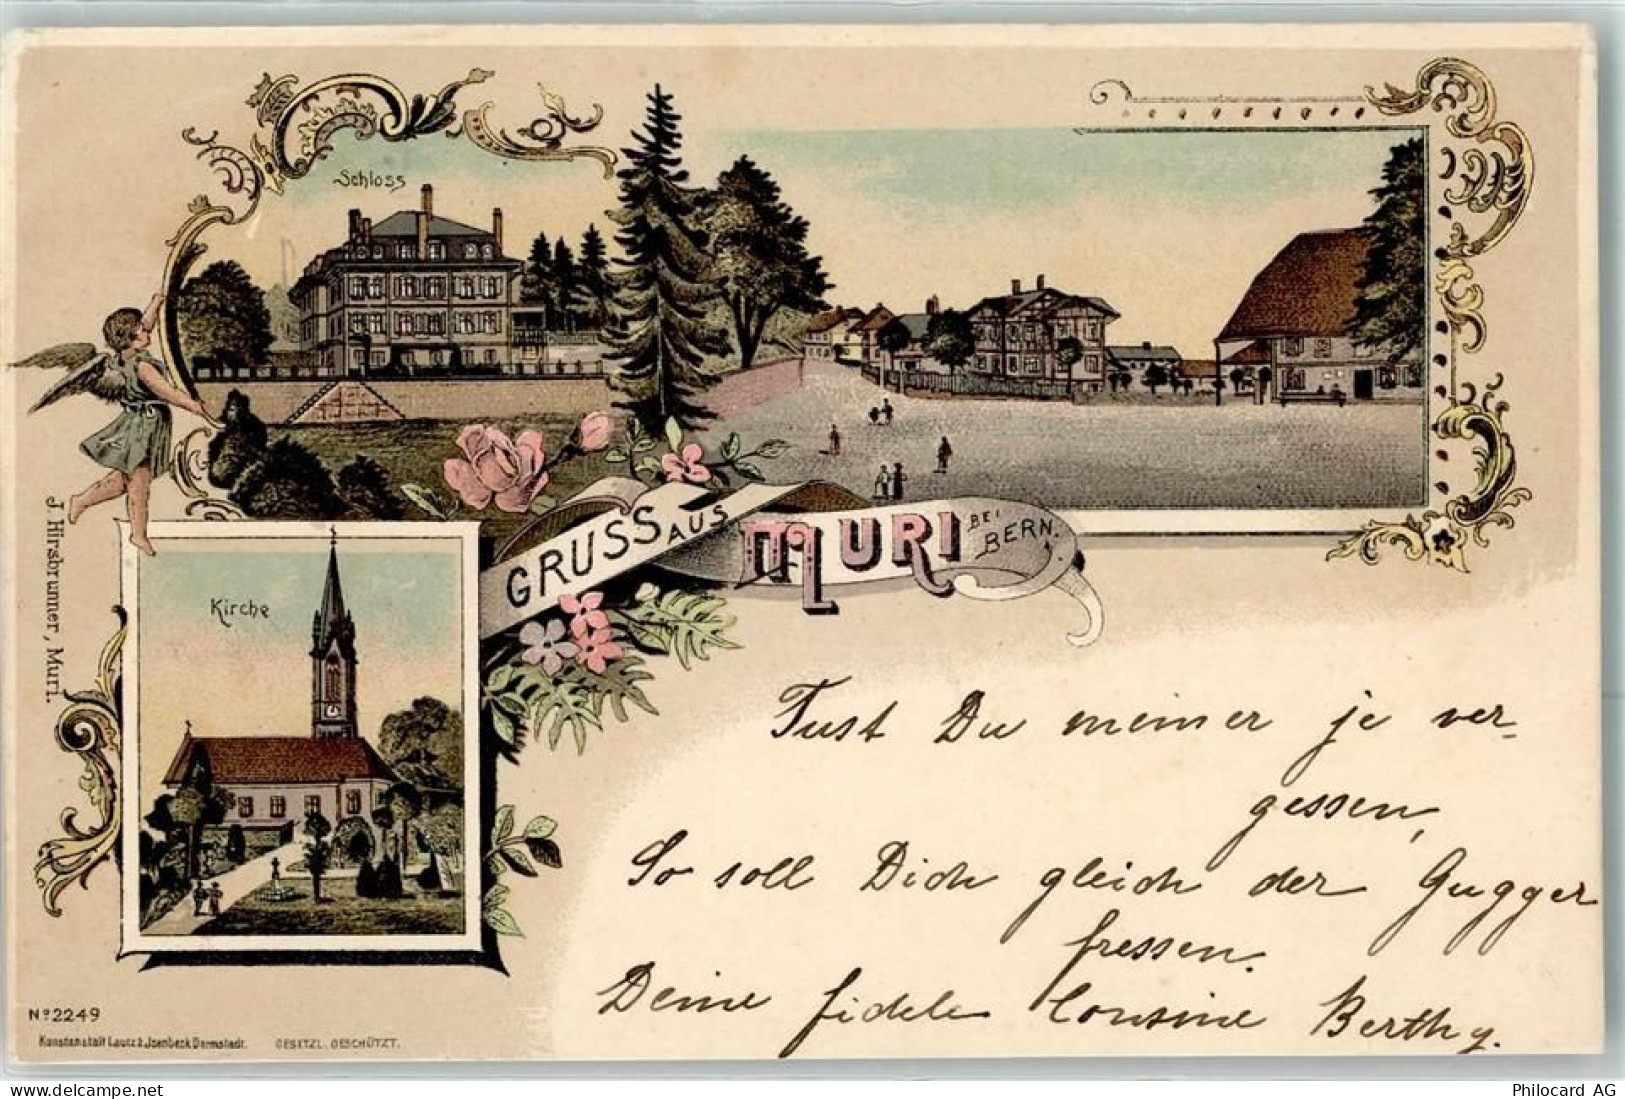 Schloss
GRUSS AUS MURI BEI BERN.
Kirche
J. Hirsbrunner, Muri.
Tust Du meiner je ver-
gessen,
So soll Dich gleich der Gugger
fressen.
Deine fidele Cousine Berthy.
Nº 2249
Kunstanstalt Lautz & Jsenbeck Darmstadt. GESETZL. GESCHÜTZT.
delcampe.net
Philocard AG